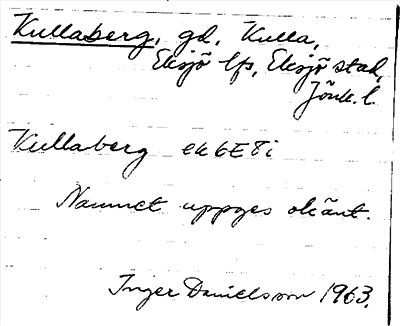 Kullaberg, gd, Kulla,
Eksjö lfs, Eksjö stad,
Jönk. l.
Kullaberg ek 6E8i
Namnet uppges okänt.
Inger Danielsson 1963.